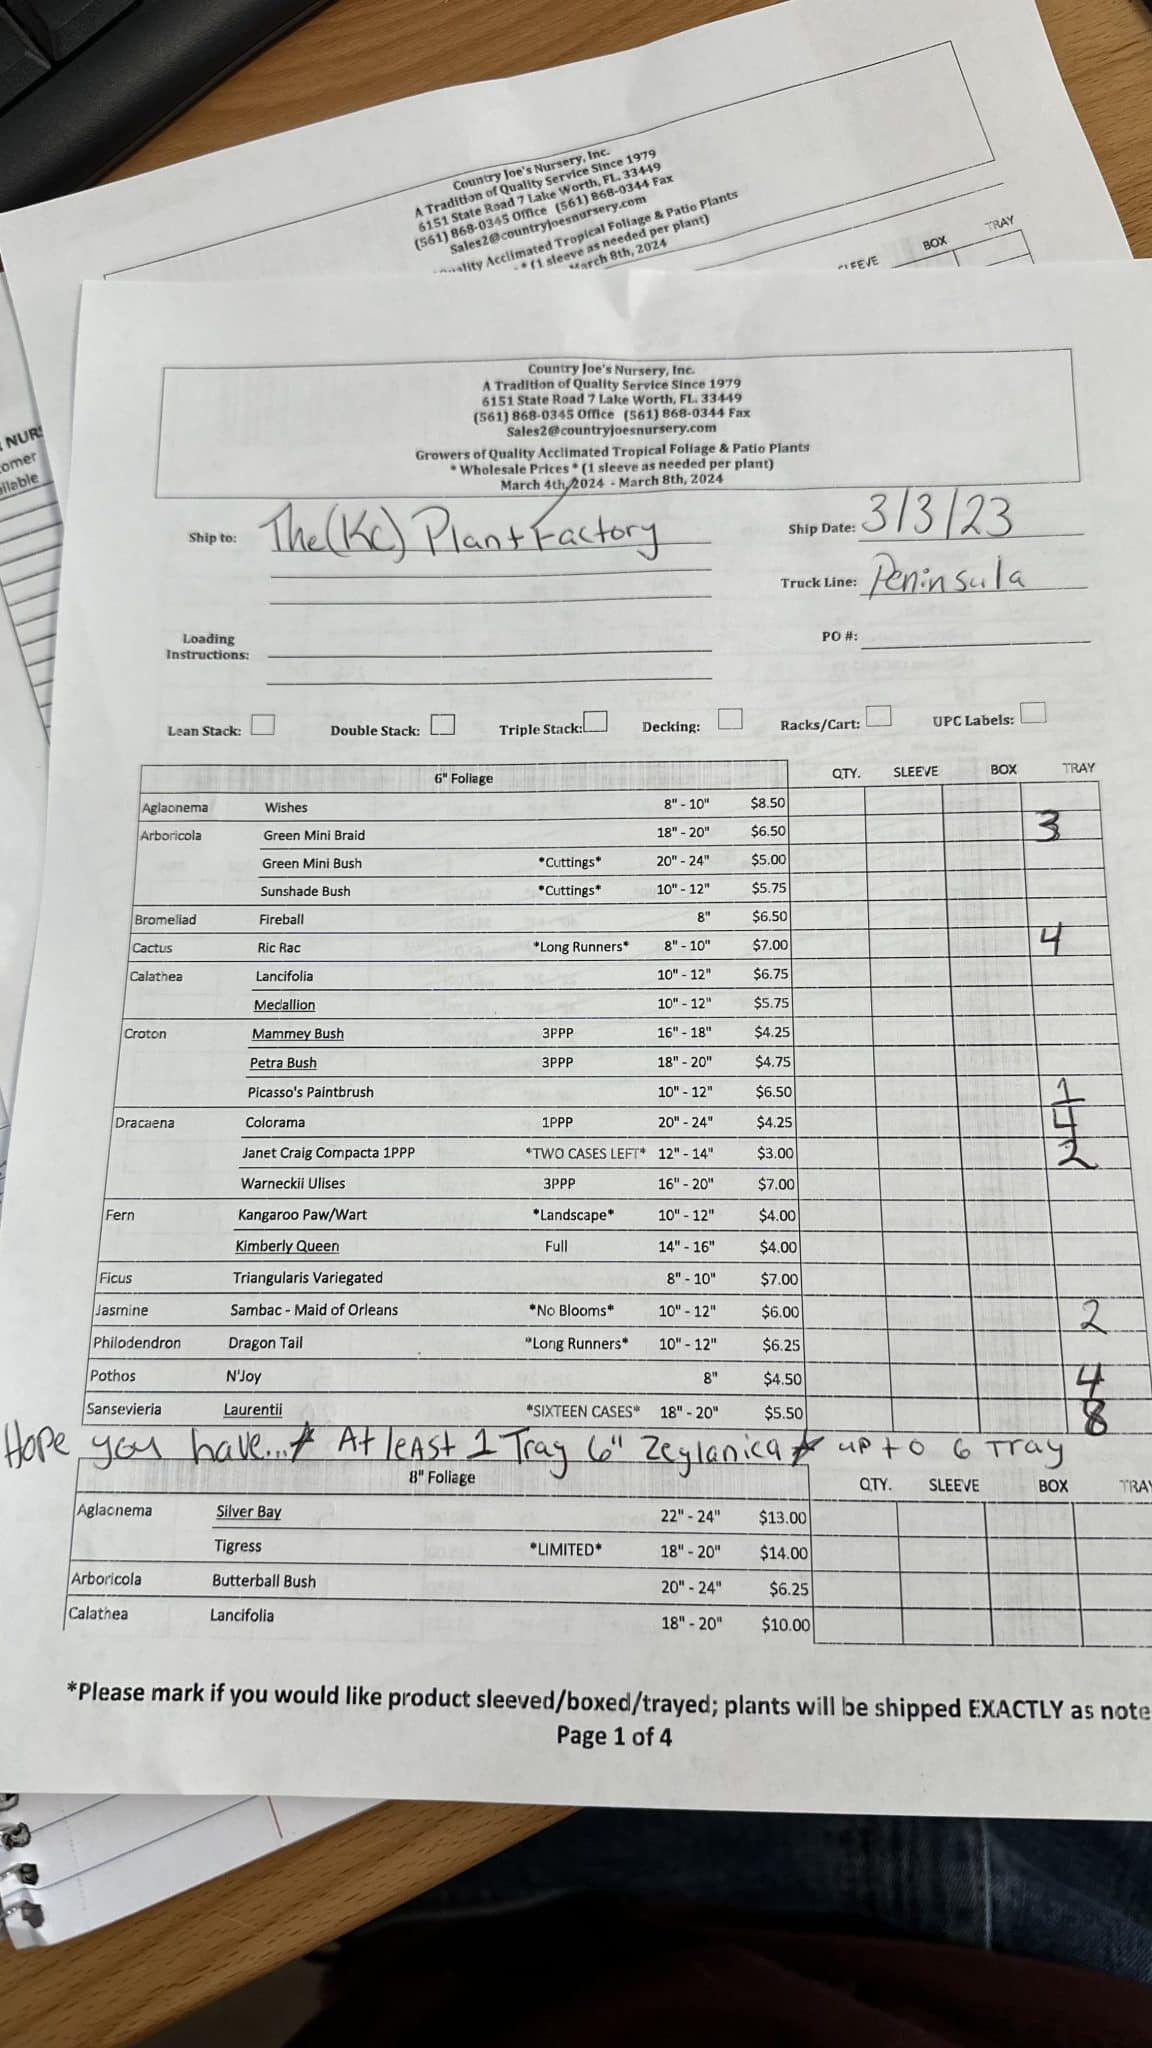 Country Joe's Nursery, Inc.
A Tradition of Quality Service Since 1979
6151 State Road 7 Lake Worth, FL. 33449
(561) 868-0345 Office (561) 868-0344 Fax
Sales2@countryjoesnursery.com
Quality Acclimated Tropical Foliage & Patio Plants
* (1 sleeve as needed per plant)
March 8th, 2024
SLEEVE BOX TRAY
NURS
omer
ilable
Country Joe's Nursery, Inc.
A Tradition of Quality Service Since 1979
6151 State Road 7 Lake Worth, FL. 33449
(561) 868-0345 Office (561) 868-0344 Fax
Sales2@countryjoesnursery.com
Growers of Quality Acclimated Tropical Foliage & Patio Plants
* Wholesale Prices * (1 sleeve as needed per plant)
March 4th, 2024 - March 8th, 2024
Ship to: The (KC) Plant Factory Ship Date: 3/3/23
Truck Line: Peninsula
Loading Instructions: PO #:
Lean Stack: Double Stack: Triple Stack: Decking: Racks/Cart: UPC Labels:
6" Foliage QTY. SLEEVE BOX TRAY
Aglaonema Wishes 8" - 10" $8.50
Arboricola Green Mini Braid 18" - 20" $6.50 3
Green Mini Bush *Cuttings* 20" - 24" $5.00
Sunshade Bush *Cuttings* 10" - 12" $5.75
Bromeliad Fireball 8" $6.50
Cactus Ric Rac *Long Runners* 8" - 10" $7.00 4
Calathea Lancifolia 10" - 12" $6.75
Medallion 10" - 12" $5.75
Croton Mammey Bush 3PPP 16" - 18" $4.25
Petra Bush 3PPP 18" - 20" $4.75
Picasso's Paintbrush 10" - 12" $6.50 1
Dracaena Colorama 1PPP 20" - 24" $4.25 4
Janet Craig Compacta 1PPP *TWO CASES LEFT* 12" - 14" $3.00 2
Warneckii Ulises 3PPP 16" - 20" $7.00
Fern Kangaroo Paw/Wart *Landscape* 10" - 12" $4.00
Kimberly Queen Full 14" - 16" $4.00
Ficus Triangularis Variegated 8" - 10" $7.00
Jasmine Sambac - Maid of Orleans *No Blooms* 10" - 12" $6.00 2
Philodendron Dragon Tail *Long Runners* 10" - 12" $6.25
Pothos N'Joy 8" $4.50 4
Sansevieria Laurentii *SIXTEEN CASES* 18" - 20" $5.50 8
Hope you have... * At least 1 Tray 6" Zeylanica * up to 6 Tray
8" Foliage QTY. SLEEVE BOX TRA
Aglaonema Silver Bay 22" - 24" $13.00
Tigress *LIMITED* 18" - 20" $14.00
Arboricola Butterball Bush 20" - 24" $6.25
Calathea Lancifolia 18" - 20" $10.00
*Please mark if you would like product sleeved/boxed/trayed; plants will be shipped EXACTLY as note
Page 1 of 4